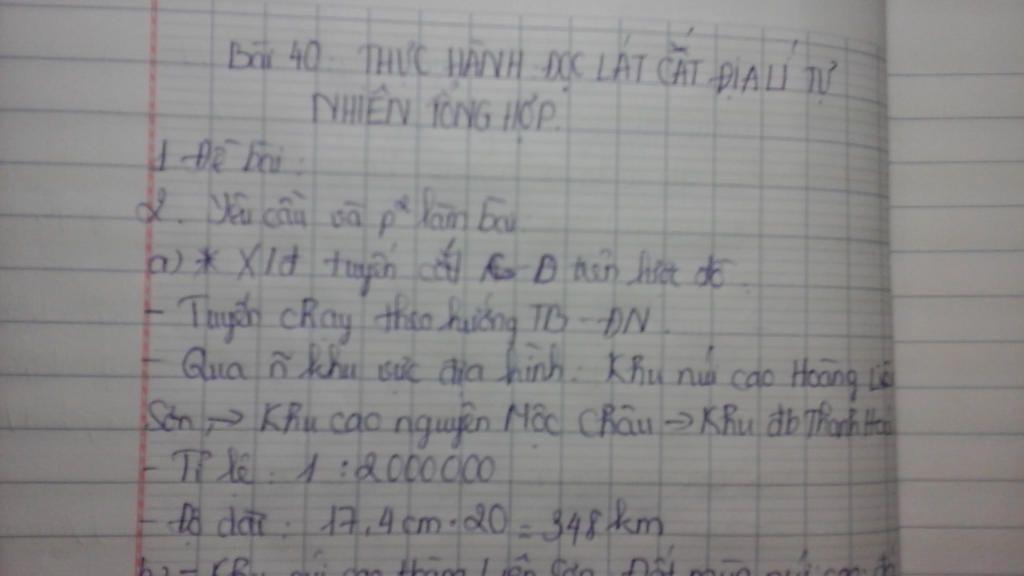 Bài 40. THỰC HÀNH ĐỌC LÁT CẮT ĐỊA LÍ TỰ
NHIÊN TỔNG HỢP.
1. Đề bài:
2. Yêu cầu và p² làm bài
a) * X/đ tuyến cắt A-B trên lược đồ.
- Tuyến chạy theo hướng TB-ĐN.
- Qua ~ khu vực địa hình: Khu núi cao Hoàng Liên
Sơn, → Khu cao nguyên Mộc Châu → Khu đb Thanh Hoá
- Tỉ lệ: 1:2000000
- Độ dài: 17,4cm.20=348km
b) - Khu núi cao Hoàng Liên Sơn: Đất mùn núi cao